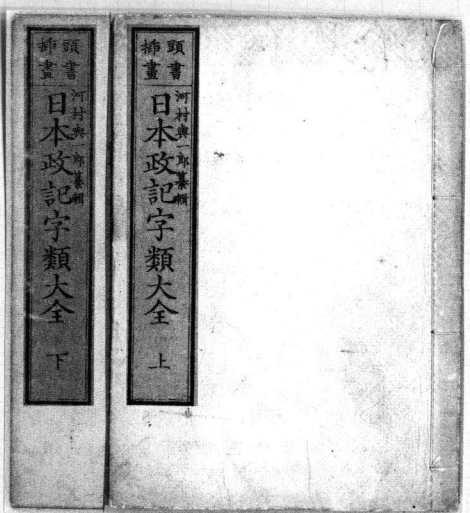 頭書
挿畫
河村與一郎纂輯
日本政記字類大全
上
頭書
挿畫
河村與一郎纂輯
日本政記字類大全
下